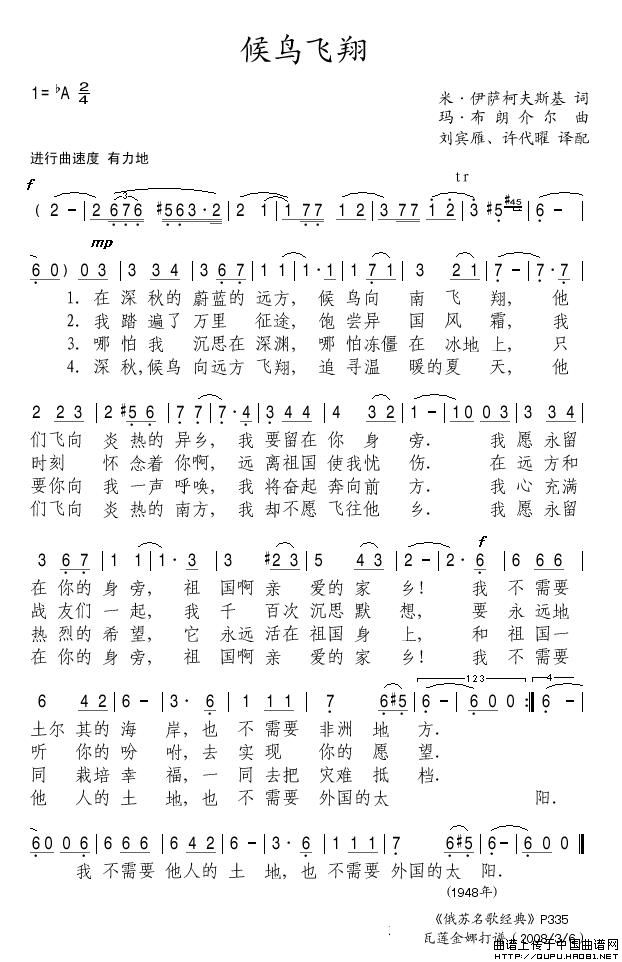 候鸟飞翔
1=♭A 2/4
米·伊萨柯夫斯基 词
玛·布朗介尔 曲
刘宾雁、许代曜 译配
进行曲速度 有力地
f tr
( 2 - | 2 6 7 6 #5 6 3 · 2 | 2 1 | 1 7 7 1 2 | 3 7 7 1 2 | 3 #5 #45 | 6 - |
mp
6 0 ) 0 3 | 3 3 4 | 3 6 7 | 1 1 | 1 · 1 | 1 7 1 | 3 2 1 | 7 - | 7 · 7 |
1. 在 深 秋的 蔚蓝的 远方, 候 鸟向 南 飞 翔, 他
2. 我 踏 遍了 万里 征途, 饱 尝异 国 风 霜, 我
3. 哪 怕 我 沉思在 深渊, 哪 怕冻僵 在 冰地 上, 只
4. 深 秋,候 鸟 向远方 飞翔, 追 寻温 暖的夏 天, 他
2 2 3 | 2 #5 6 | 7 7 | 7 · 4 | 3 4 4 | 4 3 2 | 1 - | 1 0 0 3 | 3 3 4 |
们飞向 炎 热的 异乡, 我 要留在 你 身 旁. 我 愿 永留
时刻 怀 念着 你啊, 远 离祖国 使我忧 伤. 在 远方和
要你向 我 一声 呼唤, 我 将奋起 奔向前 方. 我 心 充满
们飞向 炎 热的 南方, 我 却不愿 飞往他 乡. 我 愿 永留
f
3 6 7 | 1 1 | 1 · 3 | 3 #2 3 | 5 4 3 | 2 - | 2 · 6 | 6 6 6 |
在 你的 身 旁, 祖 国啊 亲 爱的 家 乡! 我 不 需要
战 友们 一 起, 我 千 百次 沉思 默 想, 要 永远地
热 烈的 希 望, 它 永远 活在 祖国 身 上, 和 祖国 一
在 你的 身 旁, 祖 国啊 亲 爱的 家 乡! 我 不 需要
1 2 3 4
6 4 2 | 6 - | 3 · 6 | 1 1 1 | 7 6 #5 | 6 - | 6 0 0 :‖ 6 - |
土尔 其的 海 岸, 也 不 需要 非洲 地 方.
听 你的 吩 咐, 去 实 现 你的 愿 望.
同 栽培 幸 福, 一 同 去把 灾难 抵 档.
他 人的 土 地, 也 不 需要 外国的太 阳.
6 0 0 6 | 6 6 6 | 6 4 2 | 6 - | 3 · 6 | 1 1 1 | 7 6 #5 | 6 - | 6 0 0 ‖
我 不需要 他人的 土 地, 也 不需要 外国的太 阳.
(1948年)
《俄苏名歌经典》P335
瓦莲金娜打谱(2008/3/6)
曲谱上传于中国曲谱网
http://QUPU.HAO81.NET